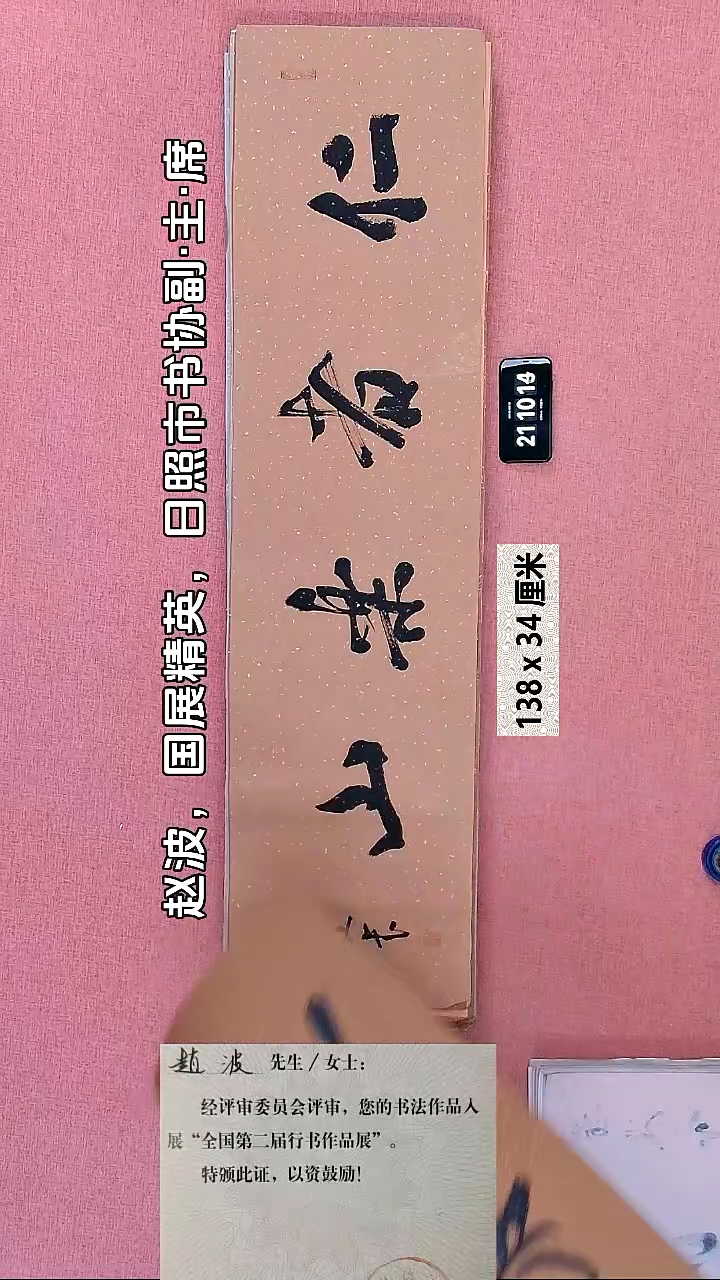 赵波，国展精英，日照市书协副·主·席
仁者乐山
21 10 14
138 x 34 厘米
趙波 先生/女士：
经评审委员会评审，您的书法作品入
展“全国第二届行书作品展”。
特颁此证，以资鼓励！